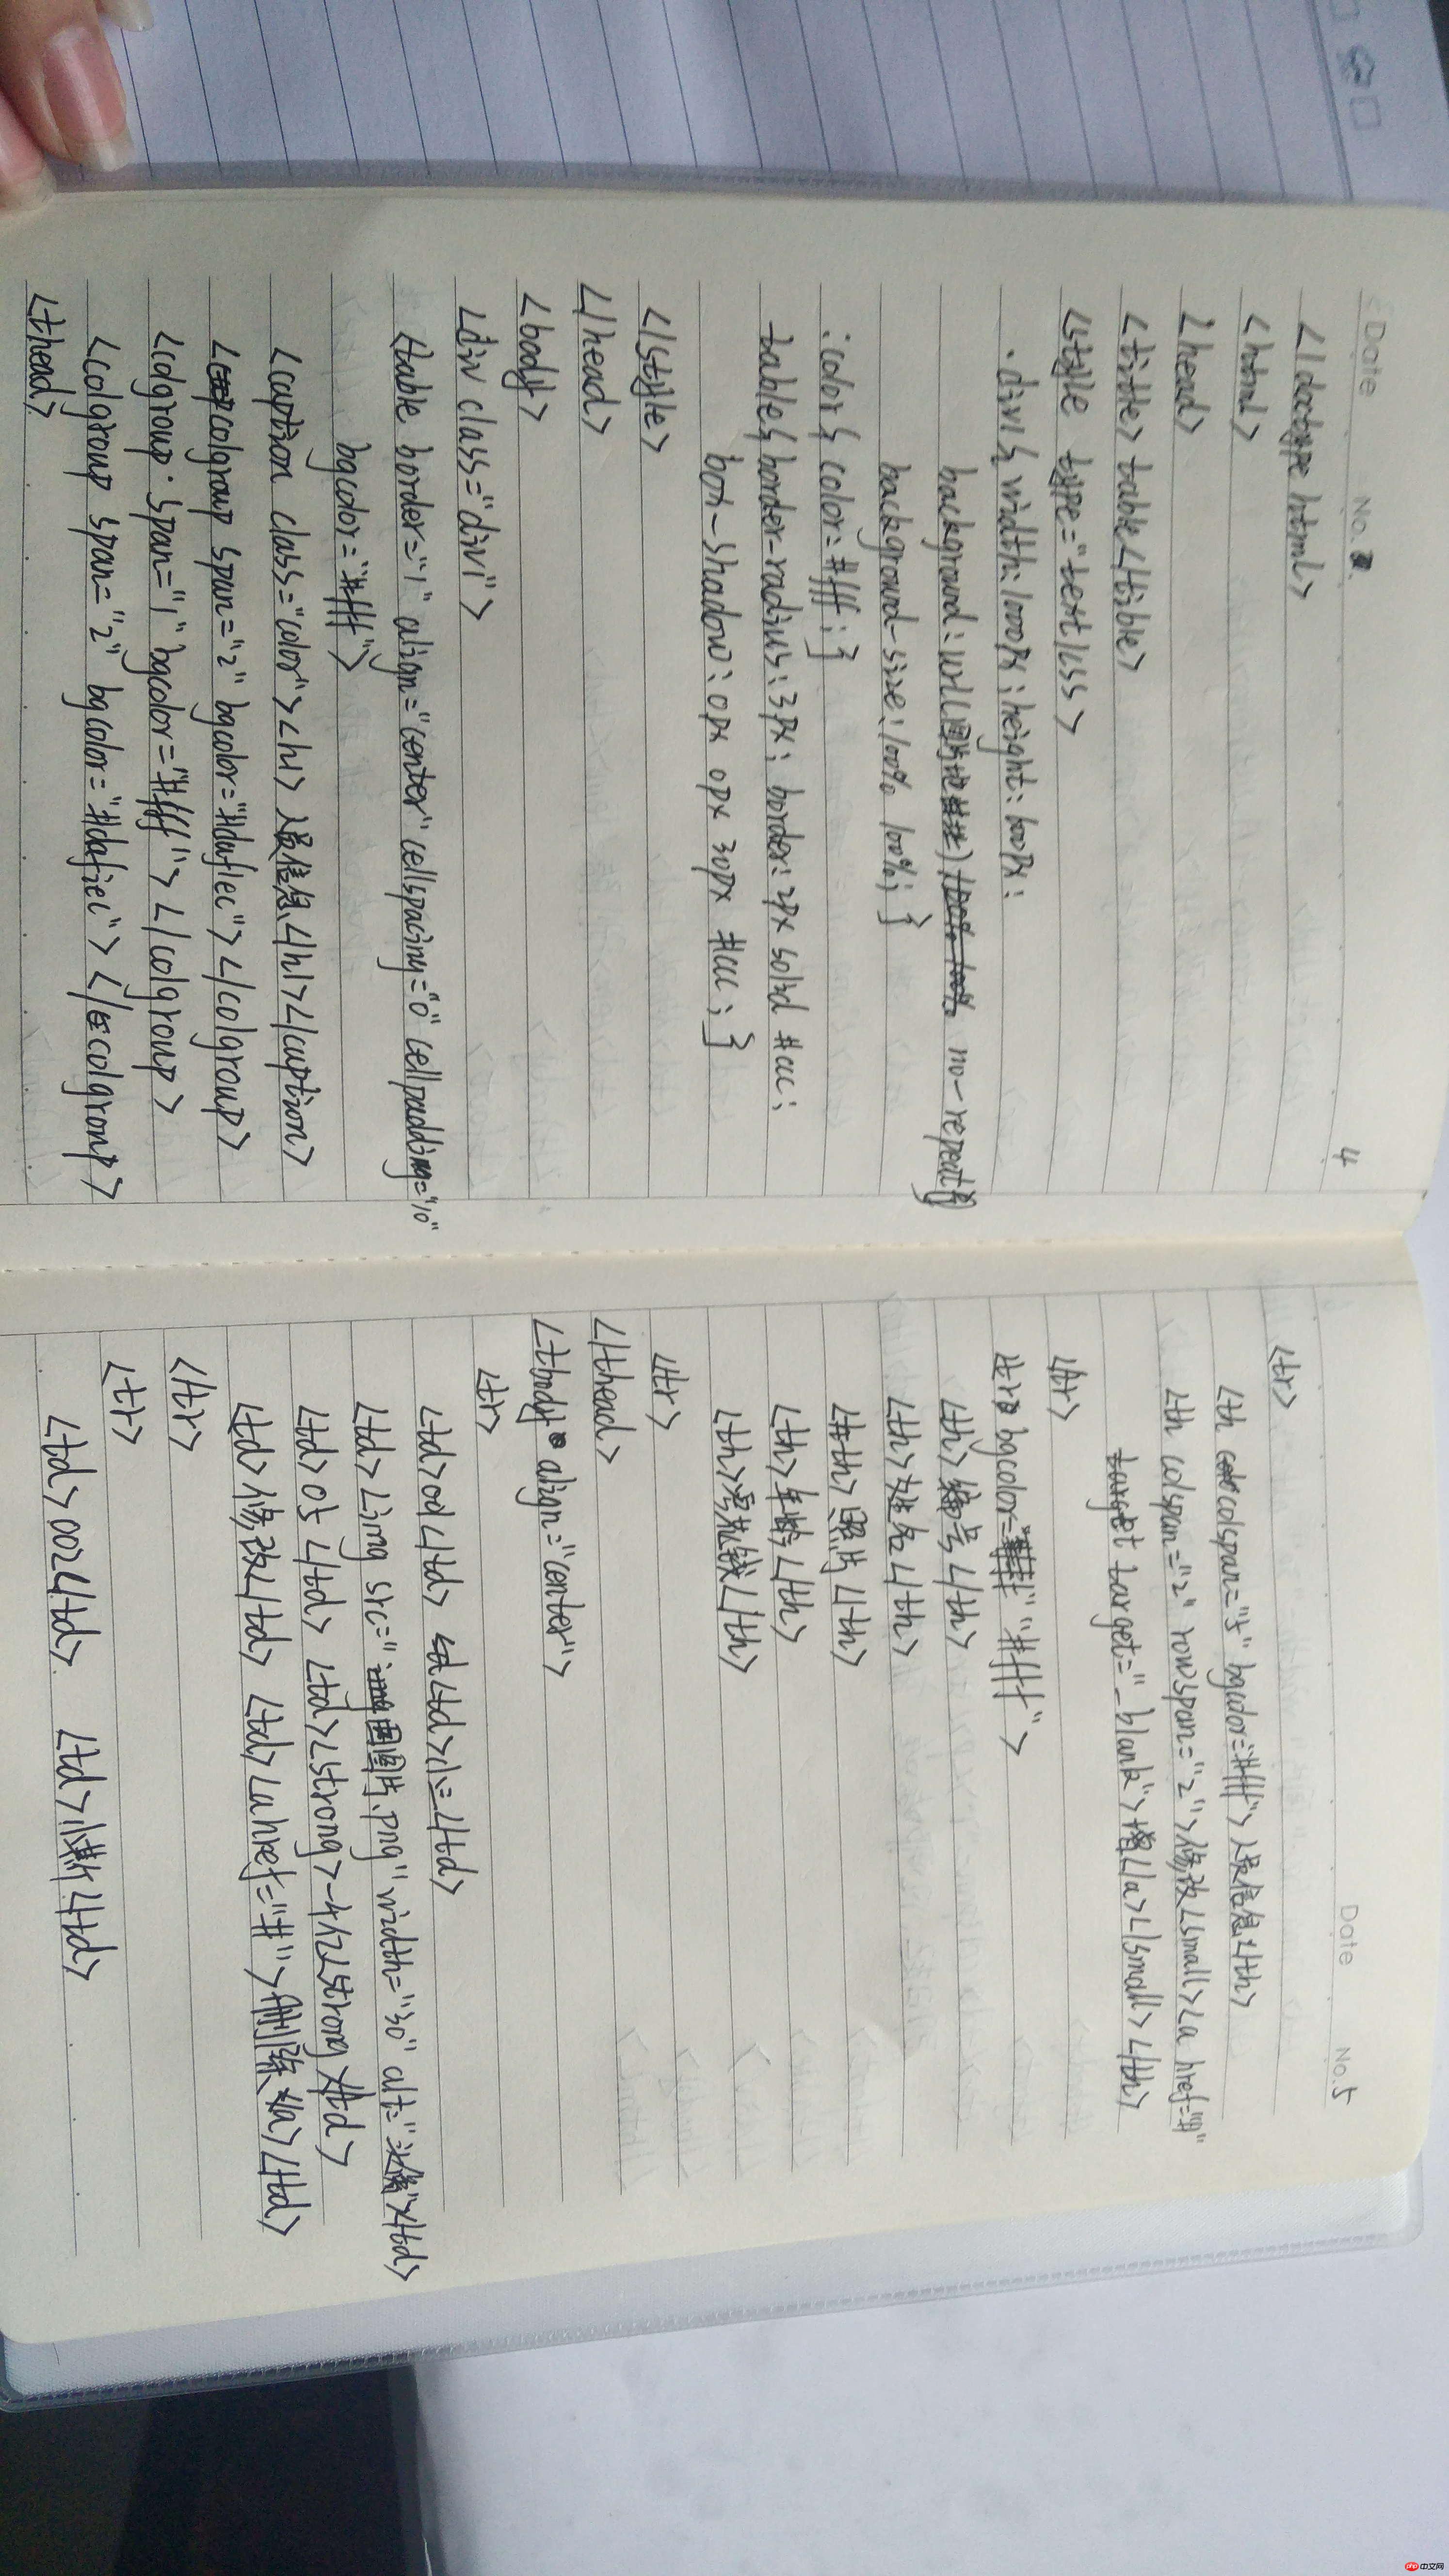 Date No.
4
<!doctype html>
<html>
<head>
<title> table</tible>
<style type="text/css>
.div1{ width:1000px;height:600px;
background:url(图片地址) no-repeat;
background-size:100% 100%;}
.color{ color=#fff;}
table{border-radius:3px; border:2px solid #ccc;
box-shadow:0px 0px 30px #ccc;}
</style>
</head>
<body>
<div class="div1">
<table border="1" align="center" cellspacing="0" cellpadding="10"
bgcolor="#fff">
<caption class="color"><h1>人员信息</h1></caption>
<colgroup span="2" bgcolor="#daf1ec"></colgroup>
<colgroup span="1" bgcolor="#fff"></colgroup>
<colgroup span="2" bgcolor="#daf1ec"></colgroup>
<thead>
Date No.5
<tr>
<th colspan="5" bgcolor="#fff">人员信息</th>
<th colspan="2" rowspan="2">修改<small><a href="#"
target="_blank">增</a></small></th>
</tr>
<tr bgcolor= "#fff">
<th>编号</th>
<th>姓名</th>
<th>照片</th>
<th>年龄</th>
<th></th>
</tr>
</thead>
<tbody align="center">
<tr>
<td></td> <td>小三</td>
<td><img src="图片.png" width="30" alt=""></td>
<td>05</td> <td><strong>-412<strong></td>
<td>修改</td> <td><a href="#">删除</a></td>
</tr>
<tr>
<td>002</td> <td></td>